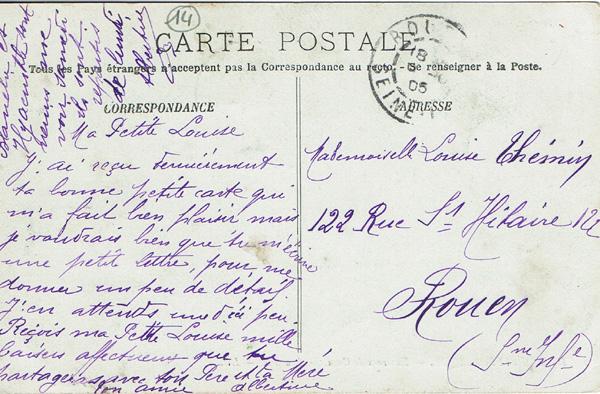 14
CARTE POSTALE
Tous les Pays étrangers n'acceptent pas la Correspondance au recto. - Se renseigner à la Poste.
CORRESPONDANCE
ADRESSE
Ma Petite Louise
J'ai reçu dernièrement
ta bonne petite carte qui
m'a fait bien plaisir mais
je voudrais bien que tu m'écrive
une petite lettre, pour me
donner un peu de détail
J'en attends une d'ici peu
Reçois ma Petite Louise mille
baisers affectueux que tu
partageras avec ton Père et ta Mère
ton amie Albertine
et
Hyacinthe sont
venus avec
samedi
ils sont
repartis
lundi
Mademoiselle Louise Thémin
122 Rue St Hilaire 122
Rouen
(Sne Infre)
05